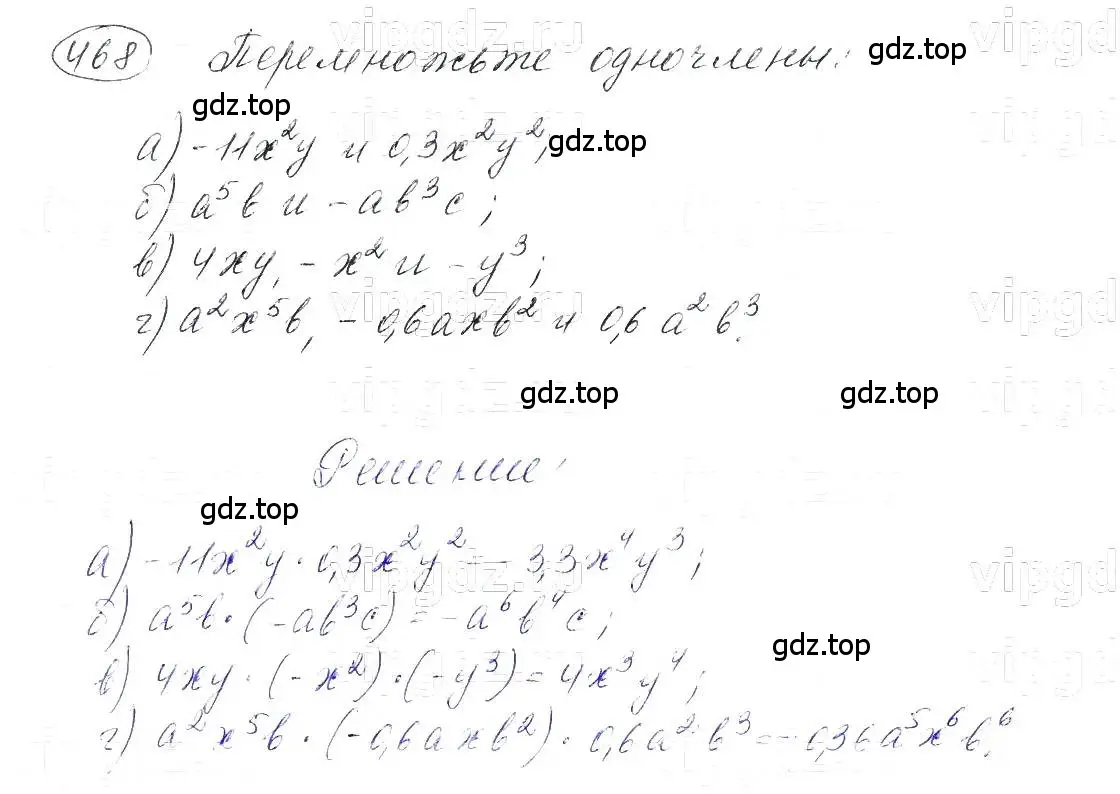 468 Перемножьте одночлены: gdz.top
gdz.top
а) -11x²y и 0,3x²y²; gdz.top
б) a⁵b и -ab³c;
в) 4xy, -x² и -y³;
г) a²x⁵b, -0,6axb² и 0,6a²b³.
gdz.top gdz.top
Решение:
gdz.top
а) -11x²y · 0,3x²y² = -3,3x⁴y³;
б) a⁵b · (-ab³c) = -a⁶b⁴c;
gdz.top
в) 4xy · (-x²) · (-y³) = 4x³y⁴;
г) a²x⁵b · (-0,6axb²) · 0,6a²b³ = -0,36a⁵x⁶b⁶.
vipgdz.ru
vipgdz.ru
vipgdz.ru